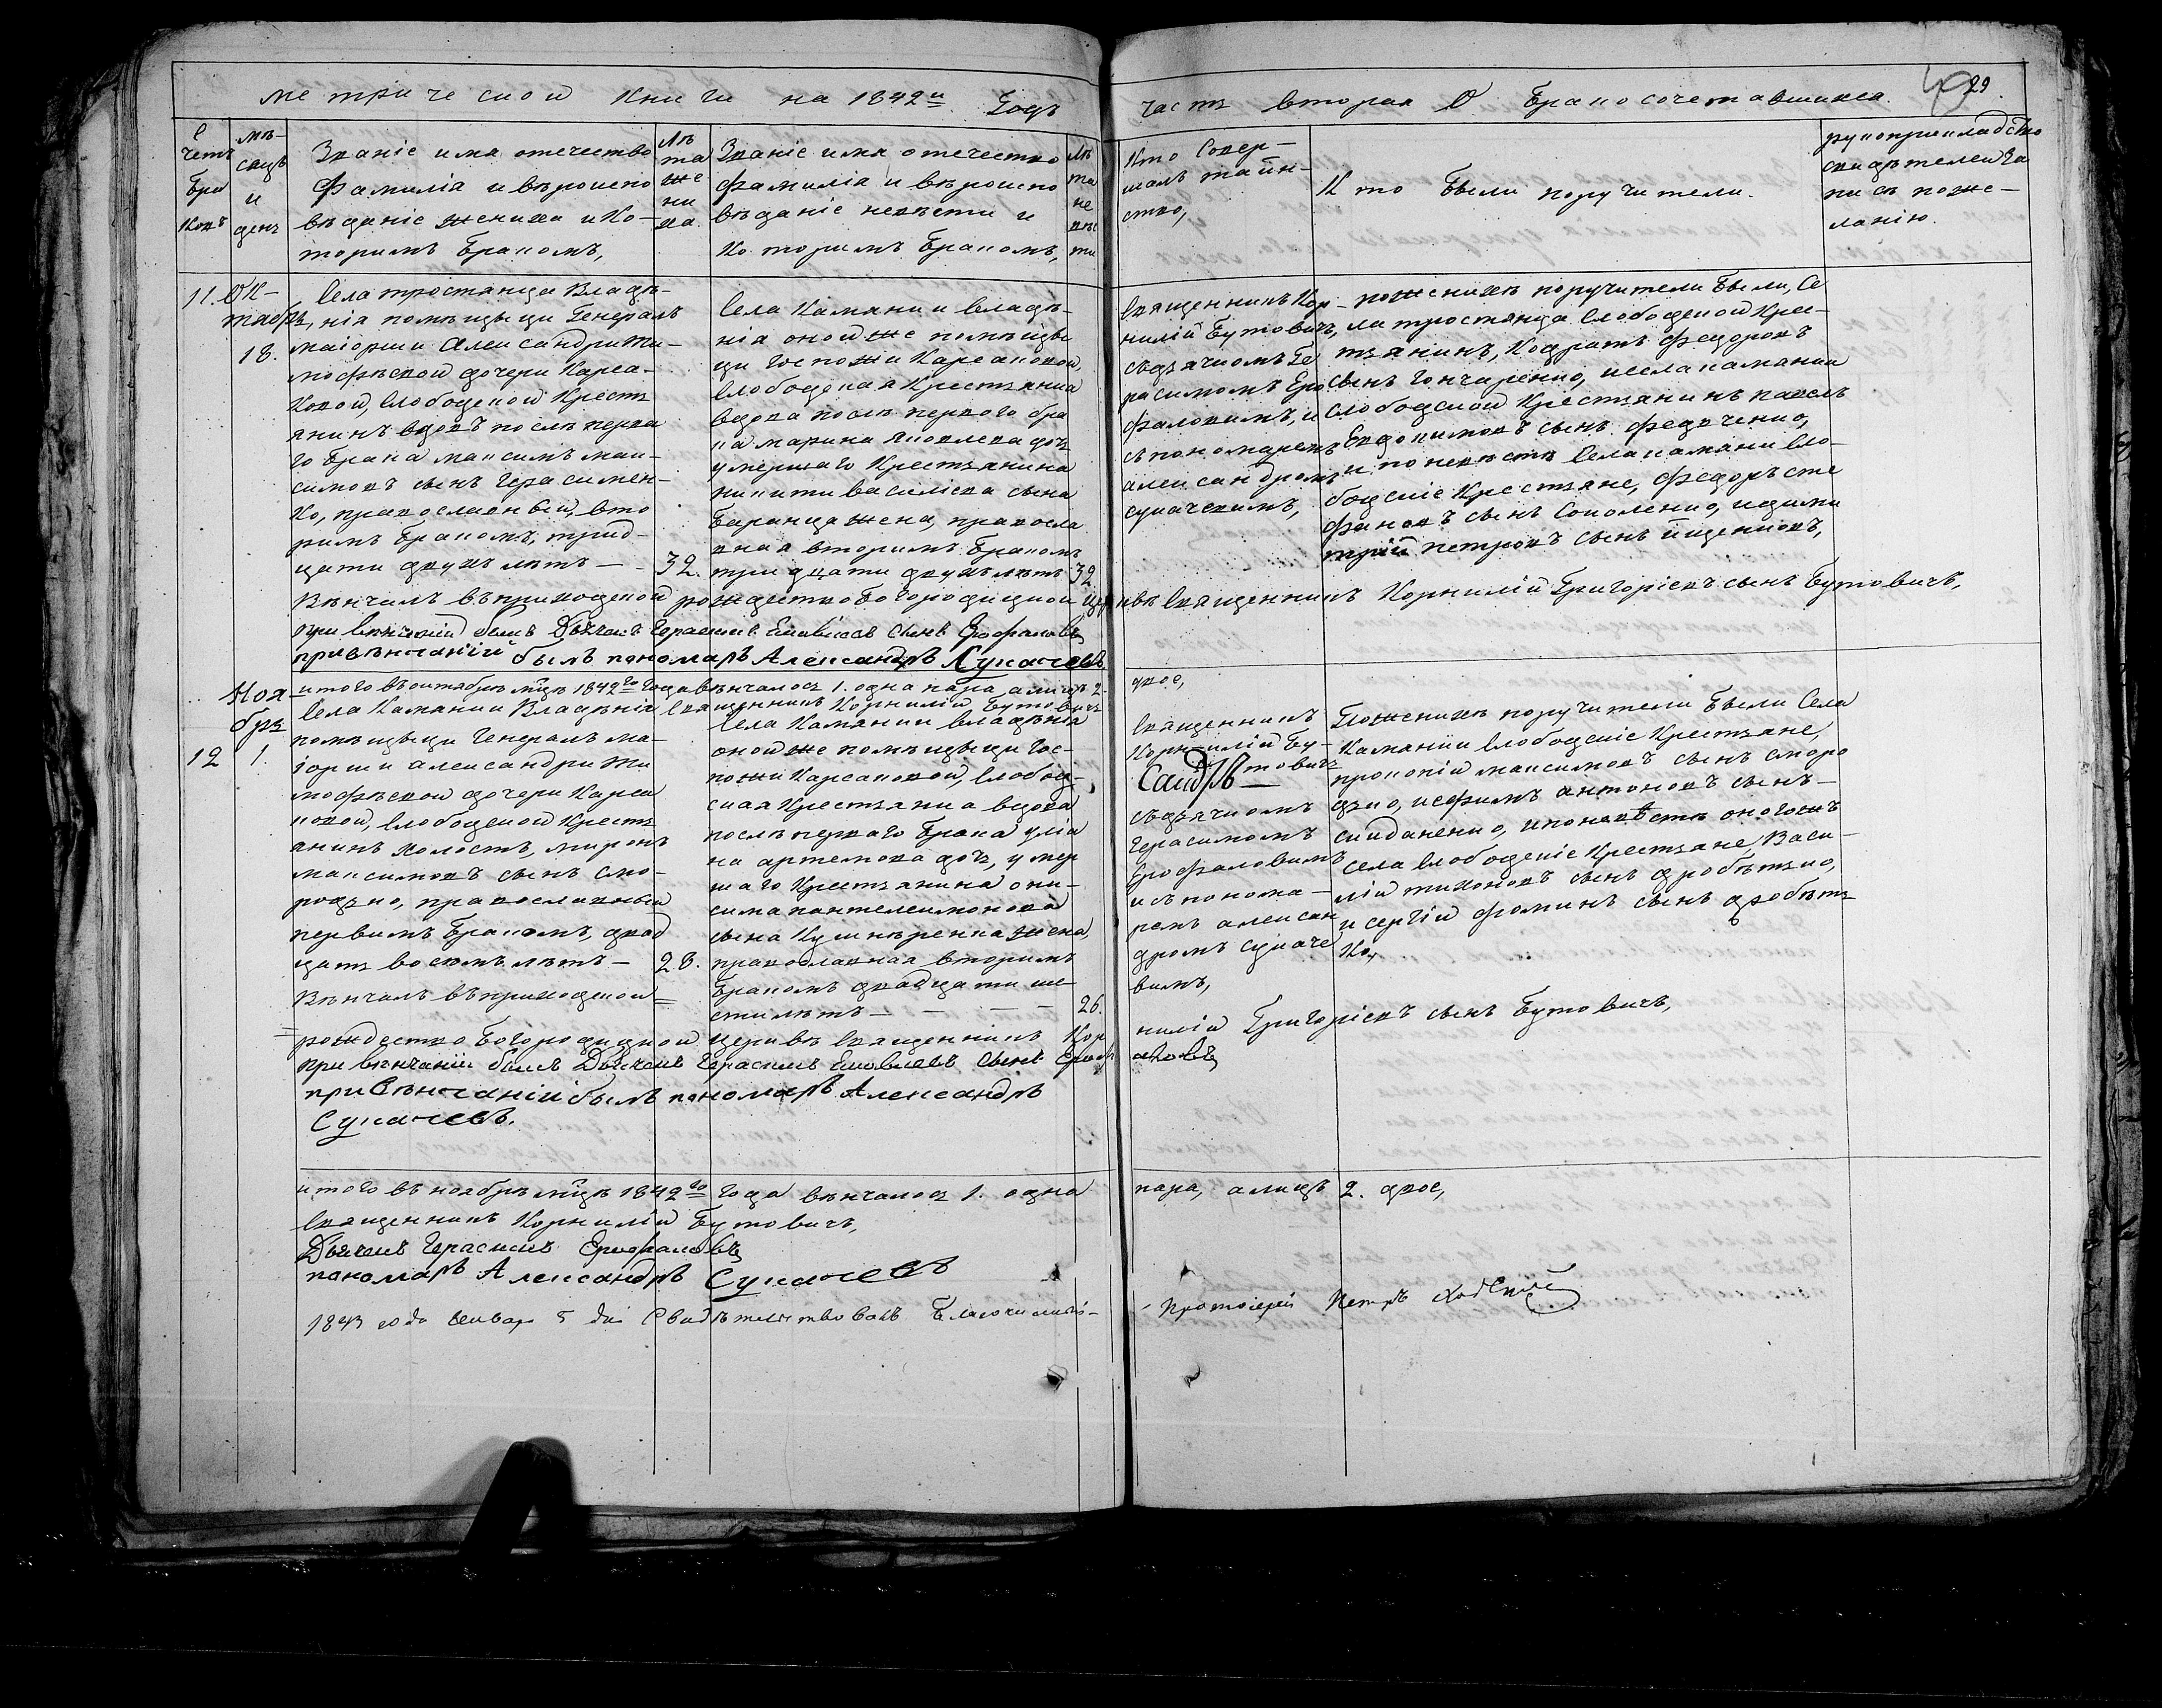 метрической книги на 1842й Годъ
часть вторая О бракосочетавшихся.
29.
Счетъ браковъ
мѣсяцъ и день
Званіе имя отечество
фамилія и вѣроиспо
вѣданіе жениха и ко-
торимъ бракомъ,
Лѣта жениха.
Званіе имя отечество
фамилія и вѣроиспо
вѣданіе невѣсти и
которимъ бракомъ,
Лѣта невѣсти
Кто совер-
шалъ таин-
ство,
Кто были поручители.
рукоприкладство
свидѣтелей за
писъ по же-
ланію.
11. Ок-
тябрь,
18.
Села тростянца владѣ-
нія помѣщыци Генералъ
маіорши Александри Ти-
мофѣевой дочери Карса-
ковой, слободской крестъ
янинъ вдовъ послѣ перва
го брака максимъ мак-
симовъ сынъ Герасимен-
ко, православный, вто
римъ бракомъ, трид-
цати двухъ лѣтъ — 32.
Села Камянки владѣ-
нія оной же помѣщы
ци Госпожи Карсаковой,
слободская крестьянка
вдова послѣ первого бра
ка марина яковлева дочь
умершаго крестьянина
никити василіева сына
баранца жена, правосла
вная вторимъ бракомъ
тридцати двухъ лѣтъ 32
Священникъ Кор-
нилій Бутовичъ,
съ дячкомъ Ге
расимомъ Еро
фаловимъ, и
съ пономаремъ
александромъ
сукачевимъ,
по женихѣ поручители были, Се
ла тростянца слободской крес-
тьянинъ, Кодратъ федоровъ
сынъ Гончаренко, и села камянки
слободской крестьянинъ павелъ
Евдокимовъ сынъ федченко,
и по невѣстѣ села камянки сло-
бодскіе крестьяне, федоръ сте
фановъ сынъ Соколенко, и дими
трій петровъ сынъ ищенковъ,
Вѣнчалъ въ приходской рождество богородицкой церквѣ священникъ Корнилій Григоріевъ сынъ Бутовичъ,
при вѣнчаніи былъ Дьячекъ Герасимъ Ековлевъ сынъ Ерофаловъ
при вѣнчаніи былъ пономарь Александръ Сукачевъ
итого въ октябрѣ м̃цѣ 1842го года вѣнчалось 1. одна пара, а лицъ 2. двое,
священникъ Корнилій Бутовичъ
Ноя-
брь
12 1.
Села Камянки владѣнія
помѣщыци Генералъ ма-
іорши александри Ти
мофѣевой дочери Карса
ковой, слободской кресть
янинъ холостъ, миронъ
максимовъ сынъ смо-
родько, православный
первимъ бракомъ, двад
цать восемъ лѣтъ — 28.
Села Камянки владѣнія
оной же помѣщыци Гос-
пожи Карсаковой, слобод-
ская крестьянка вдова
послѣ первого брака улія
на артемова дочь, умер
шаго крестьянина они-
сима пантелеимонова
сына Кушнѣренка жена,
православная вторимъ
бракомъ двадцати ше-
сти лѣтъ — — — 26.
священникъ
Корнилій Бу-
товичъ
съ дячкомъ
Герасимомъ
Ерофаловимъ
и съ понома-
ремъ алексан
дромъ сукаче
вимъ,
По женихѣ поручители были Села
Камянки слободскіе крестьяне,
прокопій максимовъ сынъ сморо
дько, и ефимъ антоновъ сынъ-
скиданенко, и по невѣстѣ оного жъ
села слободскіе крестьяне, Васи-
лій тихоновъ сынъ дробѣтько,
и сергій фоминъ сынъ дробѣть
ко,
Вѣнчалъ въ приходской=
=рождество богородицкой церквѣ священникъ Корнилій Григоріевъ сынъ Бутовичъ,
при вѣнчаніи былъ Дьячекъ Герасимъ Ековлевъ сынъ Ерофаловъ
при вѣнчаніи былъ пономарь Александръ
Сукачевъ.
итого въ ноябрѣ м̃цѣ 1842го года вѣнчалось 1. одна пара, а лицъ 2. двое,
священникъ Корнилій Бутовичъ,
Дьячекъ Герасимъ Ерофаловъ
пономарь Александръ Сукачевъ
1843 года Январ 5 дня Свидѣтельствовалъ Благочинный- Протоіерей Петръ